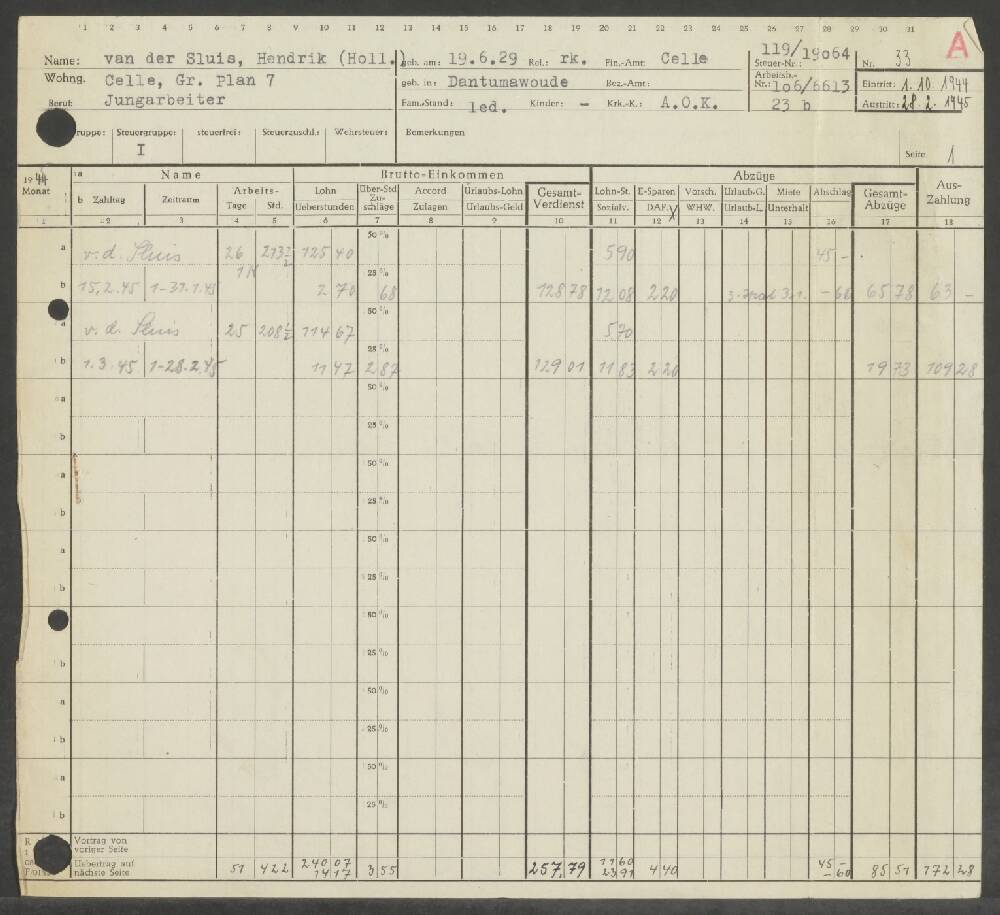 1 2 3 4 5 6 7 8 9 10 11 12 13 14 15 16 17 18 19 20 21 22 23 24 25 26 27 28 29 30 31
A
Name: van der Sluis, Hendrik (Holl.) geb. am: 19.6.29 Rel.: rk. Fin.-Amt: Celle Steuer-Nr.: 119/19064 Nr. 33
Wohng. Celle, Gr. Plan 7 geb. in: Dantumawoude Bez.-Amt: Arbeitsb.-Nr.: 106/6613 Eintritt: 1.10.1944
Beruf: Jungarbeiter Fam.Stand: led. Kinder: - Krk.-K.: A.O.K. 23 b Austritt: 28.2.1945
ruppe: Steuergruppe: steuerfrei: Steuerzuschl.: Wehrsteuer: Bemerkungen
I
Seite 1
1944 Monat 1a Name Brutto-Einkommen Abzüge Aus-Zahlung
b Zahltag Zeitraum Arbeits- Tage Std. Lohn Ueberstunden Über-Std Zu-schläge Accord Zulagen Urlaubs-Lohn Urlaubs-Geld Gesamt-Verdienst Lohn-St. Sozialv. E-Sparen DAF. X Vorsch. WHW. Urlaub-G. Urlaub-L. Miete Unterhalt Abschlag Gesamt-Abzüge
1 2 3 4 5 6 7 8 9 10 11 12 13 14 15 16 17 18
a v. d. Sluis 26 213½ 125 40 50 % 5 90 45 -
1N 25 %
b 15.2.45 1-31.1.45 2 70 68 128 78 12 08 2 20 3.1. - 60 65 78 63 -
a v. d. Sluis 25 208½ 114 67 50 % 5 70
25 %
b 1.3.45 1-28.2.45 11 47 2 87 129 01 11 83 2 20 19 73 109 28
a 50 %
b 25 %
a 50 %
b 25 %
a 50 %
b 25 %
a 50 %
b 25 %
a 50 %
b 25 %
a 50 %
b 25 %
R Vortrag von voriger Seite
Uebertrag auf nächste Seite 51 422 240 07 14 17 3 55 257,79 11 60 23 91 4 40 45 - - 60 85 51 172 28